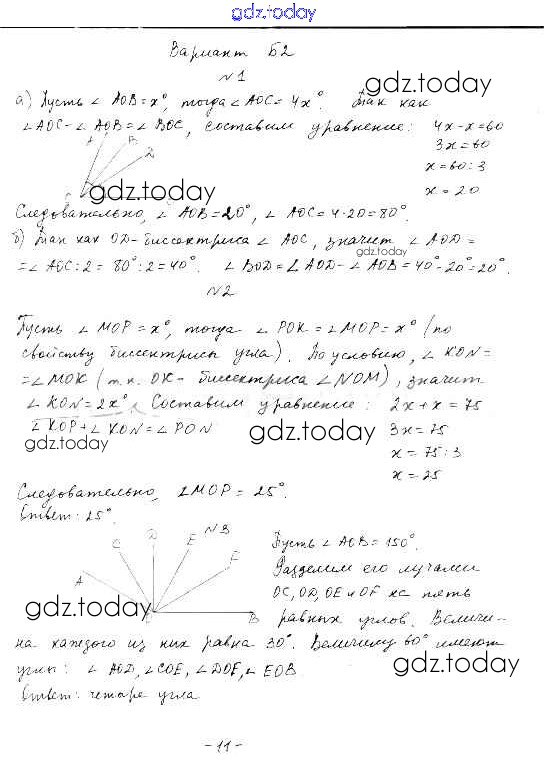 gdz.today
Вариант Б2
№1
gdz.today
а) Пусть ∠ AOB = x°, тогда ∠ AOC = 4x°. Так как
∠AOC - ∠ AOB = ∠ BOC, составим уравнение: 4x-x=60
3x=60
x=60:3
x=20
A B
gdz.today
Следовательно, ∠ AOB = 20°, ∠ AOC = 4·20 = 80°.
б) Так как OD-биссектриса ∠ AOC, значит ∠ AOD =
gdz.today
= ∠ AOC:2 = 80°:2 = 40°. ∠ BOD = ∠ AOD - ∠ AOB = 40°-20°=20°.
№2
Пусть ∠ MOP = x°, тогда ∠ POK = ∠ MOP = x° (по
свойству биссектрисы угла). По условию, ∠ KON =
= ∠ MOK (т.к. OK - биссектриса ∠ NOM), значит
∠ KON = 2x°. Составим уравнение: 2x + x = 75
∠ KOP + ∠ KON = ∠ PON 3x = 75
gdz.today gdz.today
x = 75 : 3
x = 25
Следовательно, ∠ MOP = 25°.
Ответ: 25°.
№3
A C D E F B
Пусть ∠ AOB = 150°.
Разделим его лучами
OC, OD, OE и OF на пять
gdz.today
равных углов. Величи-
на каждого из них равна 30°. Величину 60° имеют
углы: ∠ AOD, ∠ COE, ∠ DOF, ∠ EOB.
gdz.today
Ответ: четыре угла
- 11 -